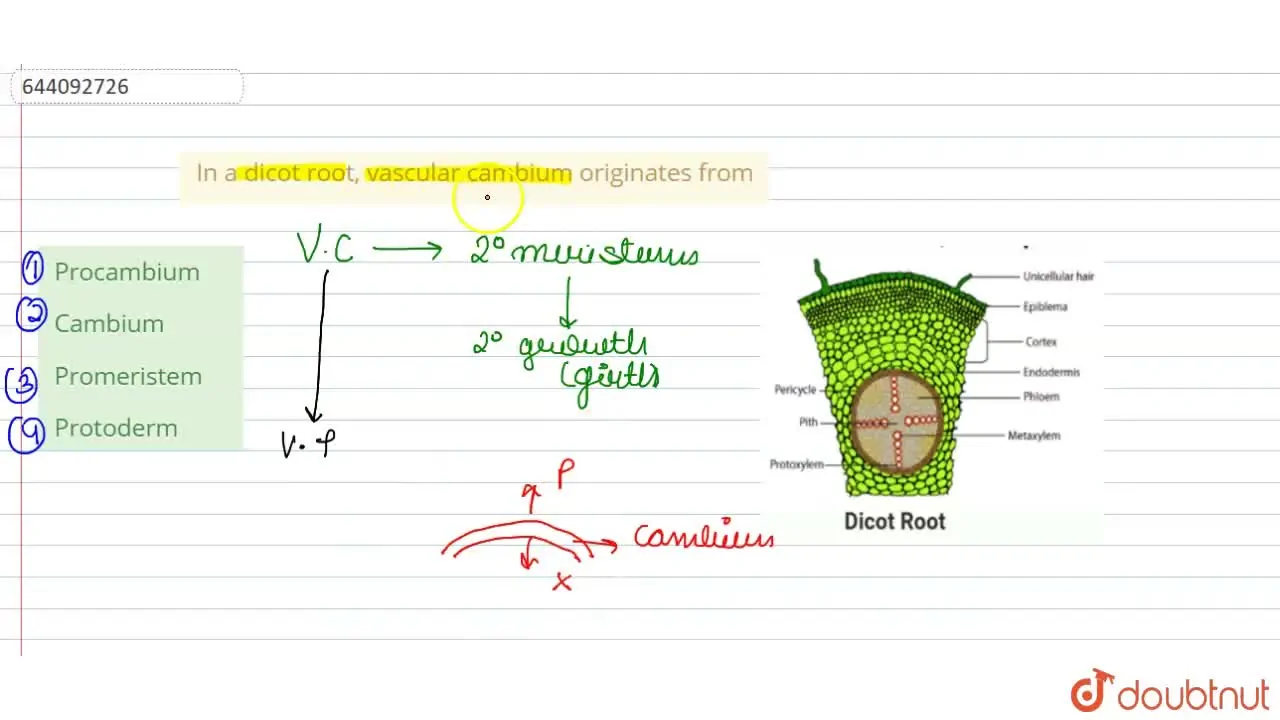 644092726
In a dicot root, vascular cambium originates from
V.C → 2° meristems
① Procambium
② Cambium
③ Promeristem
④ Protoderm
2° growth
(girth)
V.T
P
Cambium
X
Unicellular hair
Epiblema
Cortex
Endodermis
Pericycle
Phloem
Pith
Metaxylem
Protoxylem
Dicot Root
doubtnut